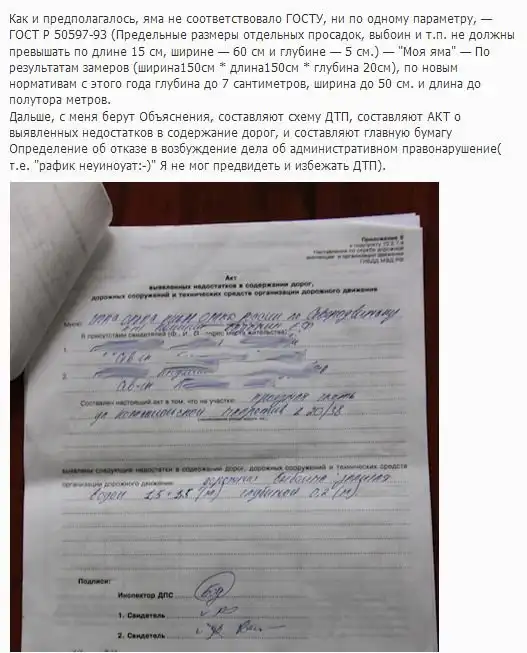 Как и предполагалось, яма не соответствовало ГОСТУ, ни по одному параметру, —
ГОСТ Р 50597-93 (Предельные размеры отдельных просадок, выбоин и т.п. не должны
превышать по длине 15 см, ширине — 60 см и глубине — 5 см.) — "Моя яма" — По
результатам замеров (ширина150см * длина150см * глубина 20см), по новым
нормативам с этого года глубина до 7 сантиметров, ширина до 50 см. и длина до
полутора метров.
Дальше, с меня берут Объяснения, составляют схему ДТП, составляют АКТ о
выявленных недостатков в содержание дорог, и составляют главную бумагу
Определение об отказе в возбуждение дела об административном правонарушение(
т.е. "рафик неуиноуат:-)" Я не мог предвидеть и избежать ДТП).
Приложение
ГИБДД МВД РФ
Акт
выявленных недостатков в содержании дорог,
дорожных сооружений и технических средств организации дорожного движения
Мною
В присутствии свидетелей (Ф., И., О., адрес места жительства)
1.
2.
Составлен настоящий акт в том, что на участке: проезжая часть
ул напротив д 20/38
выявлены следующие недостатки в содержании дорог, дорожных сооружений и технических средств
организации дорожного движения дорожная выбоина
водой (м) глубиной 0,2 (м)
Подписи:
Инспектор ДПС
1. Свидетель
2. Свидетель